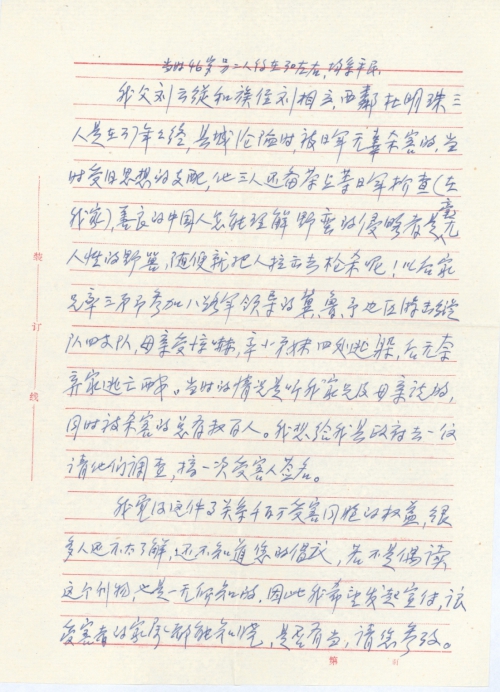 当时46岁另二人约在30左右，均系平民
我父刘云从和族侄刘相立，西邻杜明珠三
人是在37年2经，县城沦陷时，被日军无辜杀害的，当
时受旧思想的支配，他三人还备茶点等日军检查（在
我家），善良的中国人怎能理解野蛮的侵略者是毫无
人性的野兽，随便就把人拉出去枪杀呢！以后家
兄率三 参加八路军领导的冀、鲁、予边区游击纵
队四支队，母亲受惊吓，率小弟妹四处逃躲，后无奈
弃家逃亡西安。当时的情况是听我家兄及母亲说的，
同时被杀害的总有数百人。我想给我县政府去一信
请他们调查，搞一次受害人签名。
我觉得这件事关系千百万受害同胞的权益，很
多人还不太了解，还不知道您的倡议，若不是偶读
这个刊物，也是一无所知的，因此我希望发起宣传，让
受害者的家属都能知晓，是否有当，请您参考。
装
订
线
第